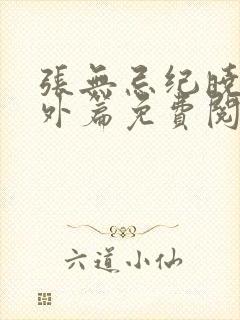 張無忌纪晓
外篇免費閱
六道小仙